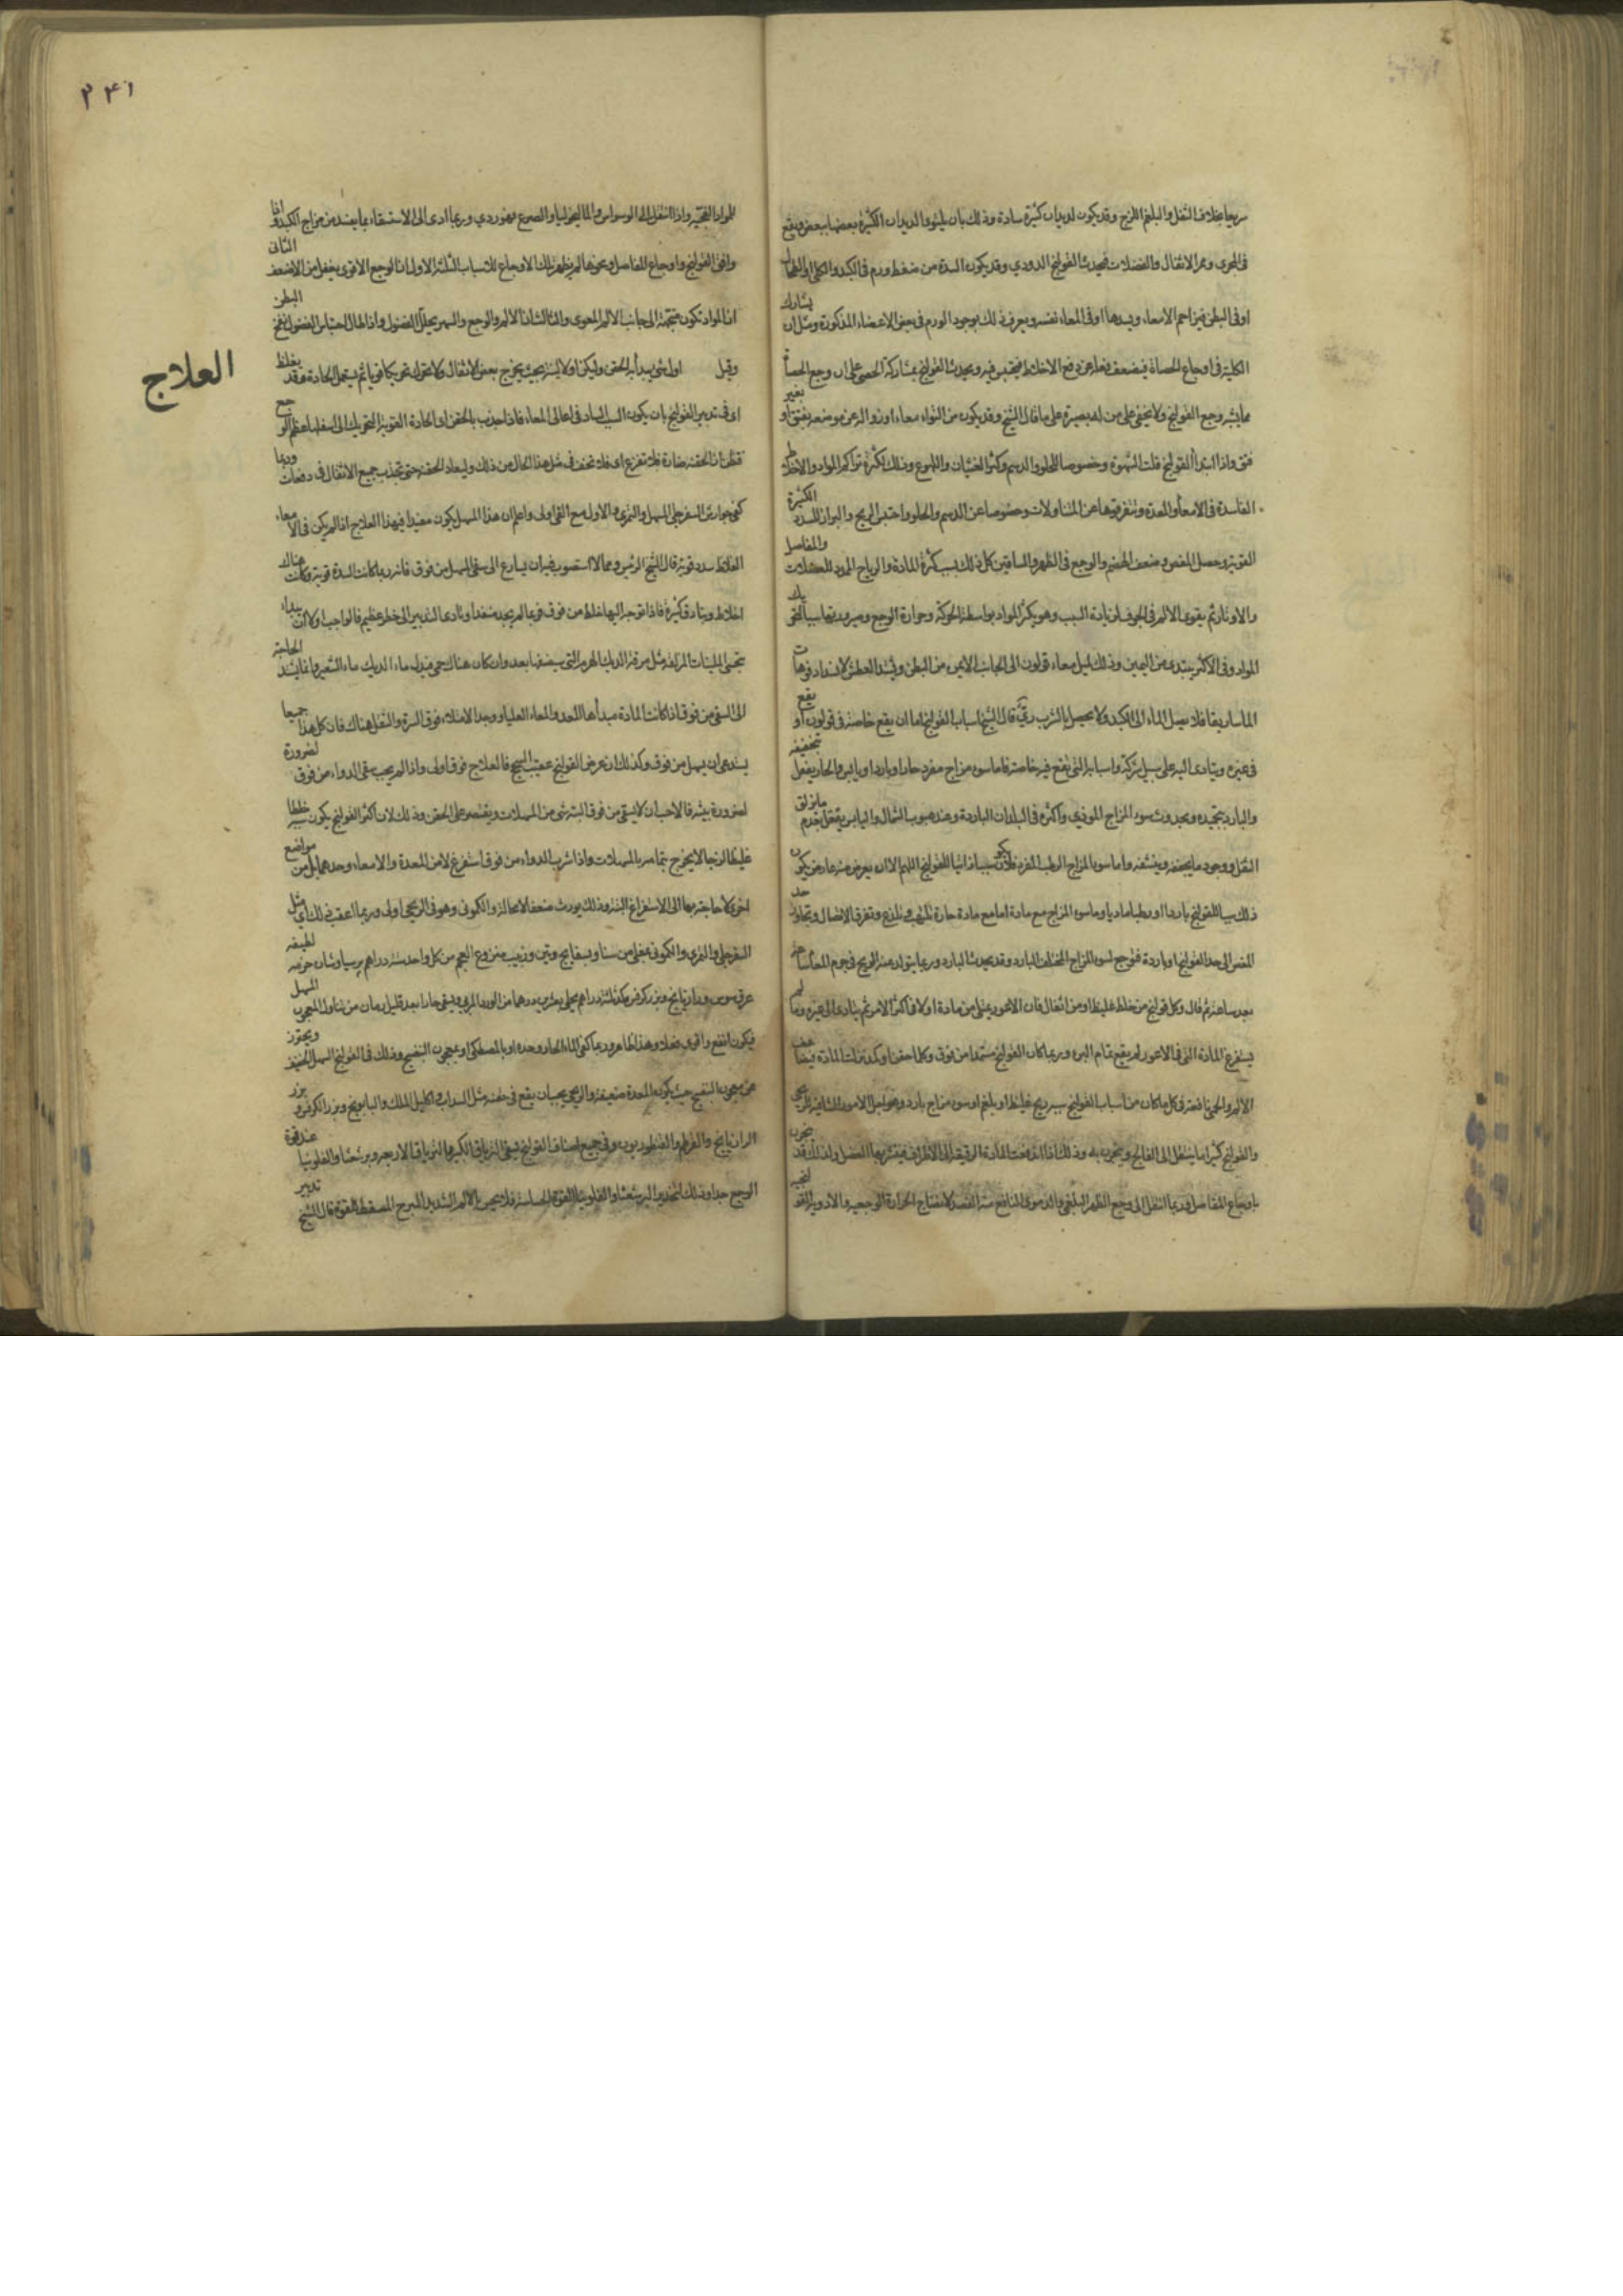 سريعا بخلاف الثفل والبلغم اللزج وقد يكون لديدان كثيرة سادة وذلك بان يلتوى الديدان الكثيرة بعضها ببعض ويقع
فى المجرى وممر الاثقال والفضلات فيحدث القولنج الدودي وقد يكون السدة من ضغط ورم فى الكبد والكلى او الطحال
او فى البطن فيزاحم الامعاء ويسدها او فى المعاء نفسه ويعرف ذلك بوجود الورم فى بعض الاعضاء المذكورة ومثل ان يشارك
الكلية فى اوجاع الحصاة فيضعف فعلها عن دفع الاخلاط فيحتبس فيه ويحدث القولنج بمشاركة الحصى على ان وجع الحصاة
مما يشبه وجع القولنج ولا يخفى على من له بصيرة على ما قال الشيخ وقد يكون من التواء معاء او زواله عن موضعه بفتق او بغير
فتق واذا ابتدأ القولنج قلت الشهوة وخصوصا للحلو والدسم وكثر الغثيان والتهوع وذلك لكثرة تراكم المواد والاخلاط
الفاسدة فى الامعاء والمعدة وتنفر قوتها عن المتناولات وخصوصا عن الدسم والحلو واحتبس الريح والبراز للسدد الكثيرة
القوية وحصل المغص وضعف الهضم والوجع فى الظهر والساقين كل ذلك بسبب كثرة المادة والرياح الممدد للعضلات والمفاصل
والاوتار ثم يقوى الالم فى الجوف لزيادة السبب وهو تكثر المواد بواسطة الحركة وحرارة الوجع وصيرورتها سببا لتحريك
المواد وفى الاكثر يبتدى من اليمين وذلك لميل معاء قولون الى الجانب الايمن من البطن ويشتد العطش لانسداد فوهات
الماساريقا فلا يصل الماء الى الكبد ولا يحصل بالشرب رى قال الشيخ اسباب القولنج اما ان يقع خاصة فى قولون او يقع
فى غيره ويتادى اليه على سبيل شركة واسبابه التى يقع فيه خاصة فاما سوء مزاج مفرد حار او بارد او يابس والحار يفعل بتجفيفه
والبارد بتجميده ويحدوث سوء المزاج الموذي واكثره فى البلدان الباردة وعند هبوب الشمال واليابس يفعل لعدم ما يزلق
الثفل ووجود ما يجففه وينشفه واما سوء المزاج الرطب المفرد فلا يكون سببا ذاتيا للقولنج اللهم الا ان يعرض منه عارض يكون
ذلك سببا للقولنج باردا او رطبا ماديا وما سوء المزاج مع مادة اما مع مادة حارة تلتهب وتلذع وتفرق الاتصال وتجاوز حد
المغص الى حد القولنج او باردة فتوجع لسوء المزاج المختلف البارد وقد يحدث البارد وربما يتولد منه الريح فى جرم المعاء ساعة
بعد ساعة ثم قال وكل قولنج من خلط غليظ او من اثقال فان الاعور يمتلى من مادة اولا فى اكثر الامر ثم يتادى الى غيره وما لم
يستفرغ المادة التى فى الاعور لم يقع تمام البرء وربما كان القولنج مستمدا من فوق وكلما حقن او كمد نزلت المادة فيضاعف
الالم والحمى نافعة فى كل ما كان من اسباب القولنج سببه ريح غليظ او بلغم او سوء مزاج بارد وهو اجل الامور المشافية للريحى
والقولنج كثيرا ما ينتقل الى الفالج ويبحرن به وذلك اذا اندفعت المادة الرقيقة الى الاطراف فيتشربها العضل ولذلك قد يبحرن
باوجاع المفاصل وربما انتقل الى وجع الظهر البلغمى والدموى النافع منه الفصد لانضاج الحرارة الوجعيه والادوية القولنجيه
٢٤١
للمواد الفجة واذا انتقل الى الوسواس والماليخوليا والصرع فهو ردي وربما ادى الى الاستسقاء بما يفسد من مزاج الكبد واذا
وافق القولنج واوجاع المفاصل ونحوها لم يظهر تلك الاوجاع لاسباب الثلثة الاول ان الوجع الاقوى يغفل من الاضعف الثانى
ان المواد تكون متجهة الى جانب الالم المعوى والثالث ان الالم والوجع والسهر يحلل الفضول واذا طال احتباس الفضول انتفخ البطن
وقبل
العلاج
اول شئ يبدأ به الحقن وليكن اولا لينة بحيث يخرج بعض الاثقال ولا يتحرك تحريكا قويا ثم يستعمل الحادة وقد يغلط
او فى تدبير القولنج بان يكون السبب الساد فى اعالى المعاء فاذا جذب بالحقن او الحادة القوية التحريك الى اسفل اعظم الوجع
فتظن ان الحقنه ضارة فلا تفزع اى فلا تخف فى مثل هذا الحال من ذلك وليعاد الحقنه حتى تجذب جميع الاثقال فى دفعات وربما
كفى جوارش السفرجلى المسهل والتمرى والاول مع القى اولى واعلم ان هذا المسهل يكون مفيدا فى هذا العلاج اذا لم يكن فى الامعاء
الغلاظ سدد قوية قال الشيخ الرئيس ومما لا استصوب فيه ان يسارع الى سقى المسهل من فوق فانه ربما كانت السدة قوية وكانت هناك
اخلاط وبنادق كثيرة فاذا توجه اليها خلط من فوق فربما لم يجد منفذا وتادى التدبير الى خطر عظيم فالواجب اولا ان يبداء
بتحسى الملينات المزلقة مثل مرقة الديك الهرم التى سيصفها بعد وان كان هناك حمى فبدل ماء الديك ماء الشعير وانما يشتد الحاجة
الى السقى من فوق اذا كانت المادة مبدأها المعدة والمعاء العليا ووجد الامتلاء فوق السرة والثقل هناك فان كل هذا جميعا
يستدعى ان يسهل من فوق وكذلك ان عرض القولنج عقيب السحج فالعلاج من فوق اولى واذا لم يجب سقى الدواء من فوق لضرورة
لضرورة بينة فالاحب ان لا يسقى من فوق البتة شئ من المسهلات ويقتصر على الحقن وذلك لان اكثر القولنج يكون سببه خلطا
غليظا لزجا لا يخرج بتمامه بالمسهلات واذا شرب الدواء من فوق استفرغ لا من المعدة والامعاء وحدهما بل من مواضع
اخر لا حاجة بها الى الاستفراغ البتة وذلك يورث ضعفا لا محالة والكمونى وهو فى الريحى اولى وربما اعقب ذلك اى مثل
السفرجلى والتمرى والكمونى بمغلى من سنا وبسفايج وتين وزبيب منزوع العجم من كل واحد ستة دراهم برسياوشان حزمه لطيفه
عرق سوس ورازيانج وبزر كرفس من كل ثلثة دراهم يحلى بعشرين درهما من الورد المربى ويسقى حارا بعد قليل زمان من تناول المعجون المسهل
فيكون انفع واقوى فعلا وهذا ظاهر وربما كفى الماء الحار وحده او بالمصطكى او بمعجون البنفسج وذلك فى القولنج السهل الخفيف ويحترز
عن معجون البنفسج حيث يكون المعدة ضعيفة والريحى يجب ان يقع فى حقنه مثل السداب واكليل الملك والبابونج وبزر الكرفس وبزر
الرازيانج والقرطم والقنطوريون وفى جميع اصناف القولنج يسقى الترياق الكبير والترياق الاربعه وبرشعثا والفلونيا عند قوة
الوجع جدا وذلك لتخدير البرشعثا والفلونيا القوة الحساسة فلا يحس بالالم الشديد المبرح المسقط للقوة قال الشيخ تدبير